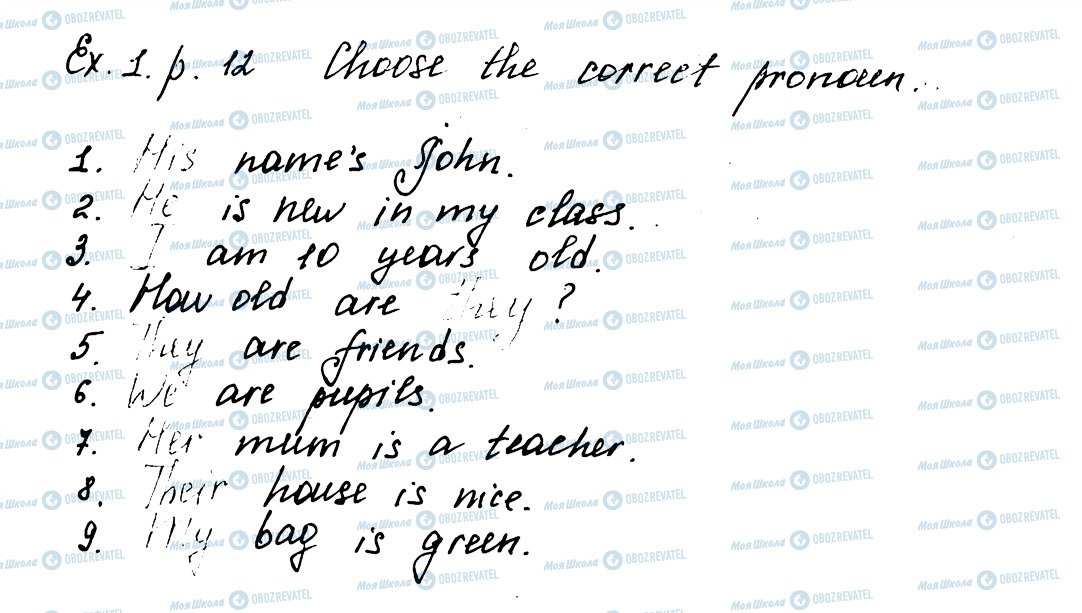 Ex. 1. p. 12 Choose the correct pronoun.
1. His name's John.
2. He is new in my class.
3. I am 10 years old.
4. How old are they?
5. They are friends.
6. We are pupils.
7. Her mum is a teacher.
8. Their house is nice.
9. My bag is green.
Моя Школа OBOZREVATEL